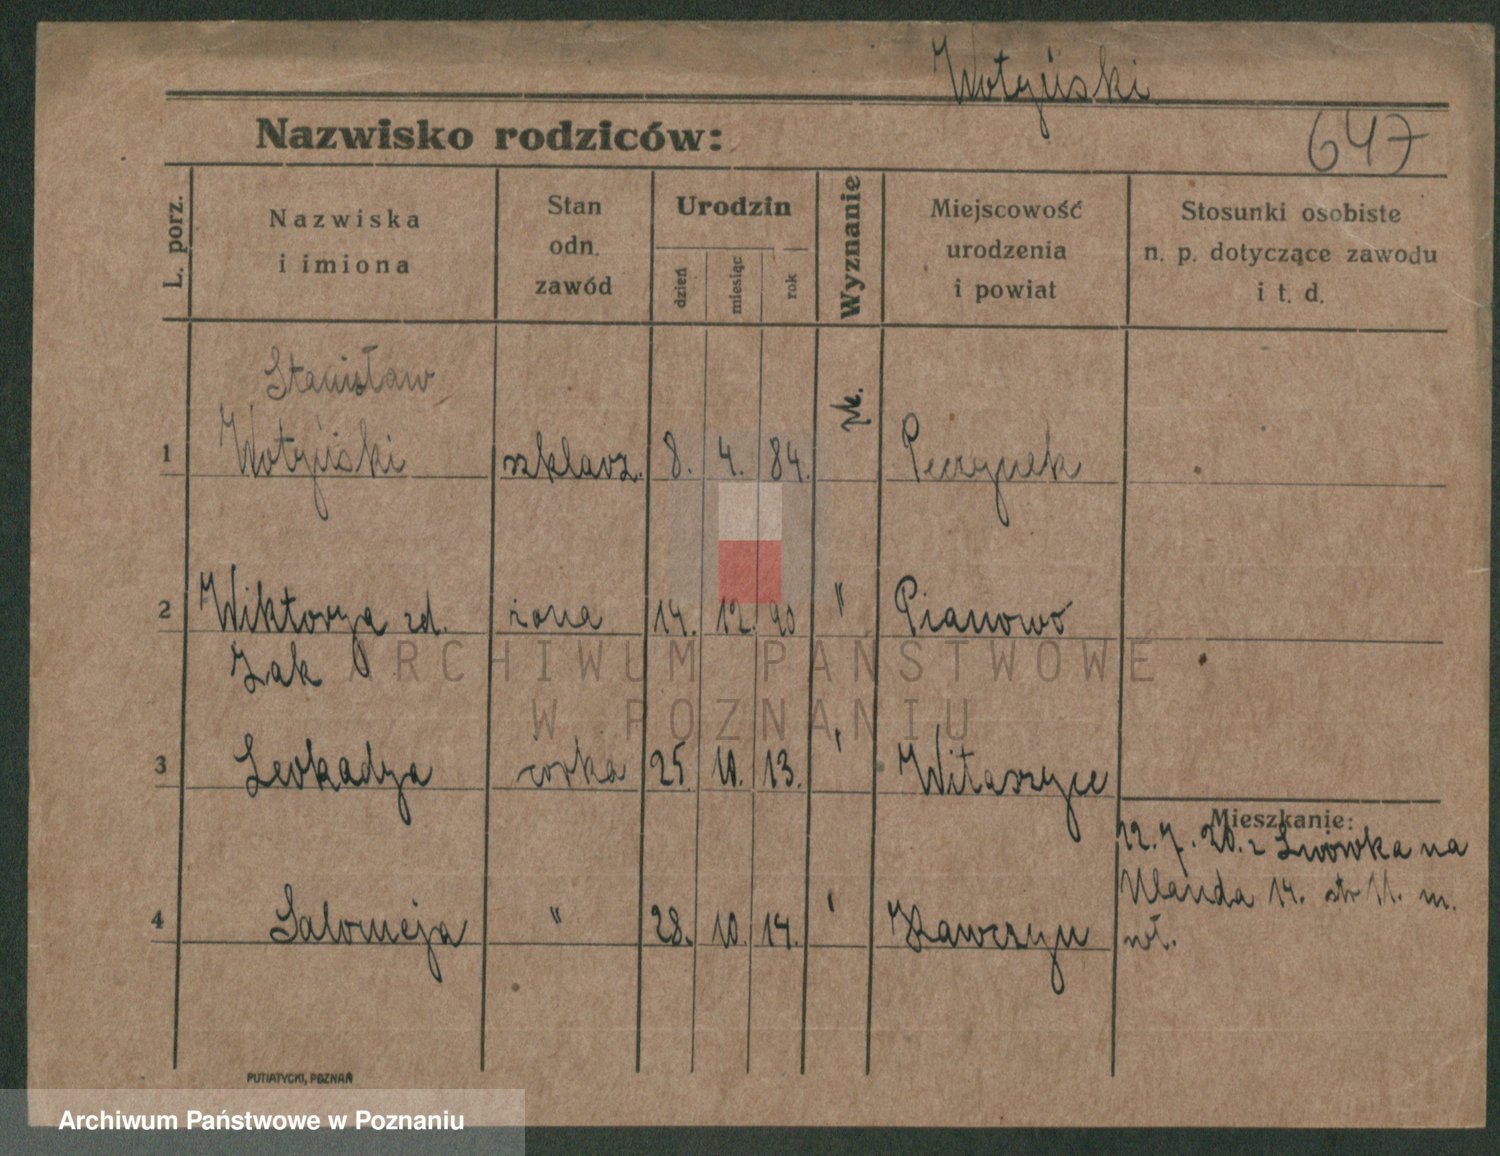 Wołyński
Nazwisko rodziców:
647
L. porz.
Nazwiska
i imiona
Stan
odn.
zawód
Urodzin
dzień
miesiąc
rok
Wyznanie
Miejscowość
urodzenia
i powiat
Stosunki osobiste
n. p. dotyczące zawodu
i t. d.
Stanisław
1 Wołyński szklarz. 8. 4. 84. rk.
2 Wiktorya zd. żona 14. 12. 90 " Pianowo
Żak
3 Leokadya córka 25. 10. 13. " Witaszyce
4 Salomeja " 28. 10. 14. " Krawczyn
Mieszkanie:
22. 7. 20. z Lwówka na
14. str 11. m.
wł.
PUTIATYCKI, POZNAŃ
ARCHIWUM PAŃSTWOWE
W POZNANIU
Archiwum Państwowe w Poznaniu